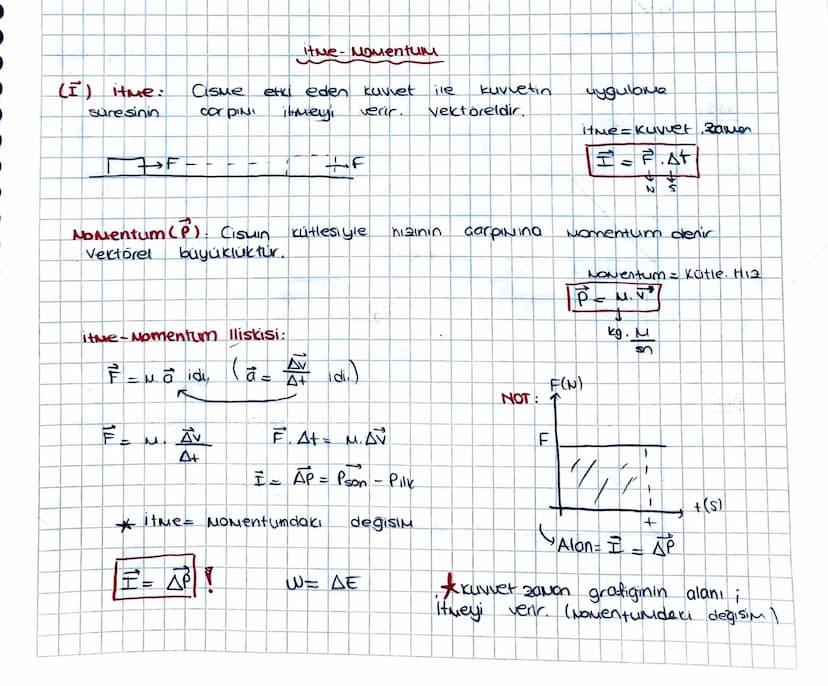 itme-momentum
(I⃗) itme: Cisme etki eden kuvvet ile kuvvetin uygulama
süresinin çarpını itmeyi verir. Vektöreldir.
itme = kuvvet . zaman
I⃗ = F⃗ . Δt
N s
→F →F
Momentum (P⃗): Cismin kütlesiyle hızının çarpınına momentum denir
Vektörel büyüklüktür.
Momentum = Kütle . Hız
P⃗ = m . v⃗
kg . m/sn
itme-momentum İlişkisi:
F⃗ = m . a⃗ idi, (a⃗ = Δv⃗/Δt idi.)
F⃗ = m . Δv⃗/Δt F⃗ . Δt = m . Δv⃗
I⃗ = ΔP⃗ = P⃗son - Pilk
* itme = momentundaki değişim
I⃗ = ΔP⃗ ! W = ΔE
NOT: F(N)
F
t(s)
t
Alan = I⃗ = ΔP⃗
* kuvvet zaman grafiğinin alanı ;
itmeyi verir. (momentumdaki değişim)